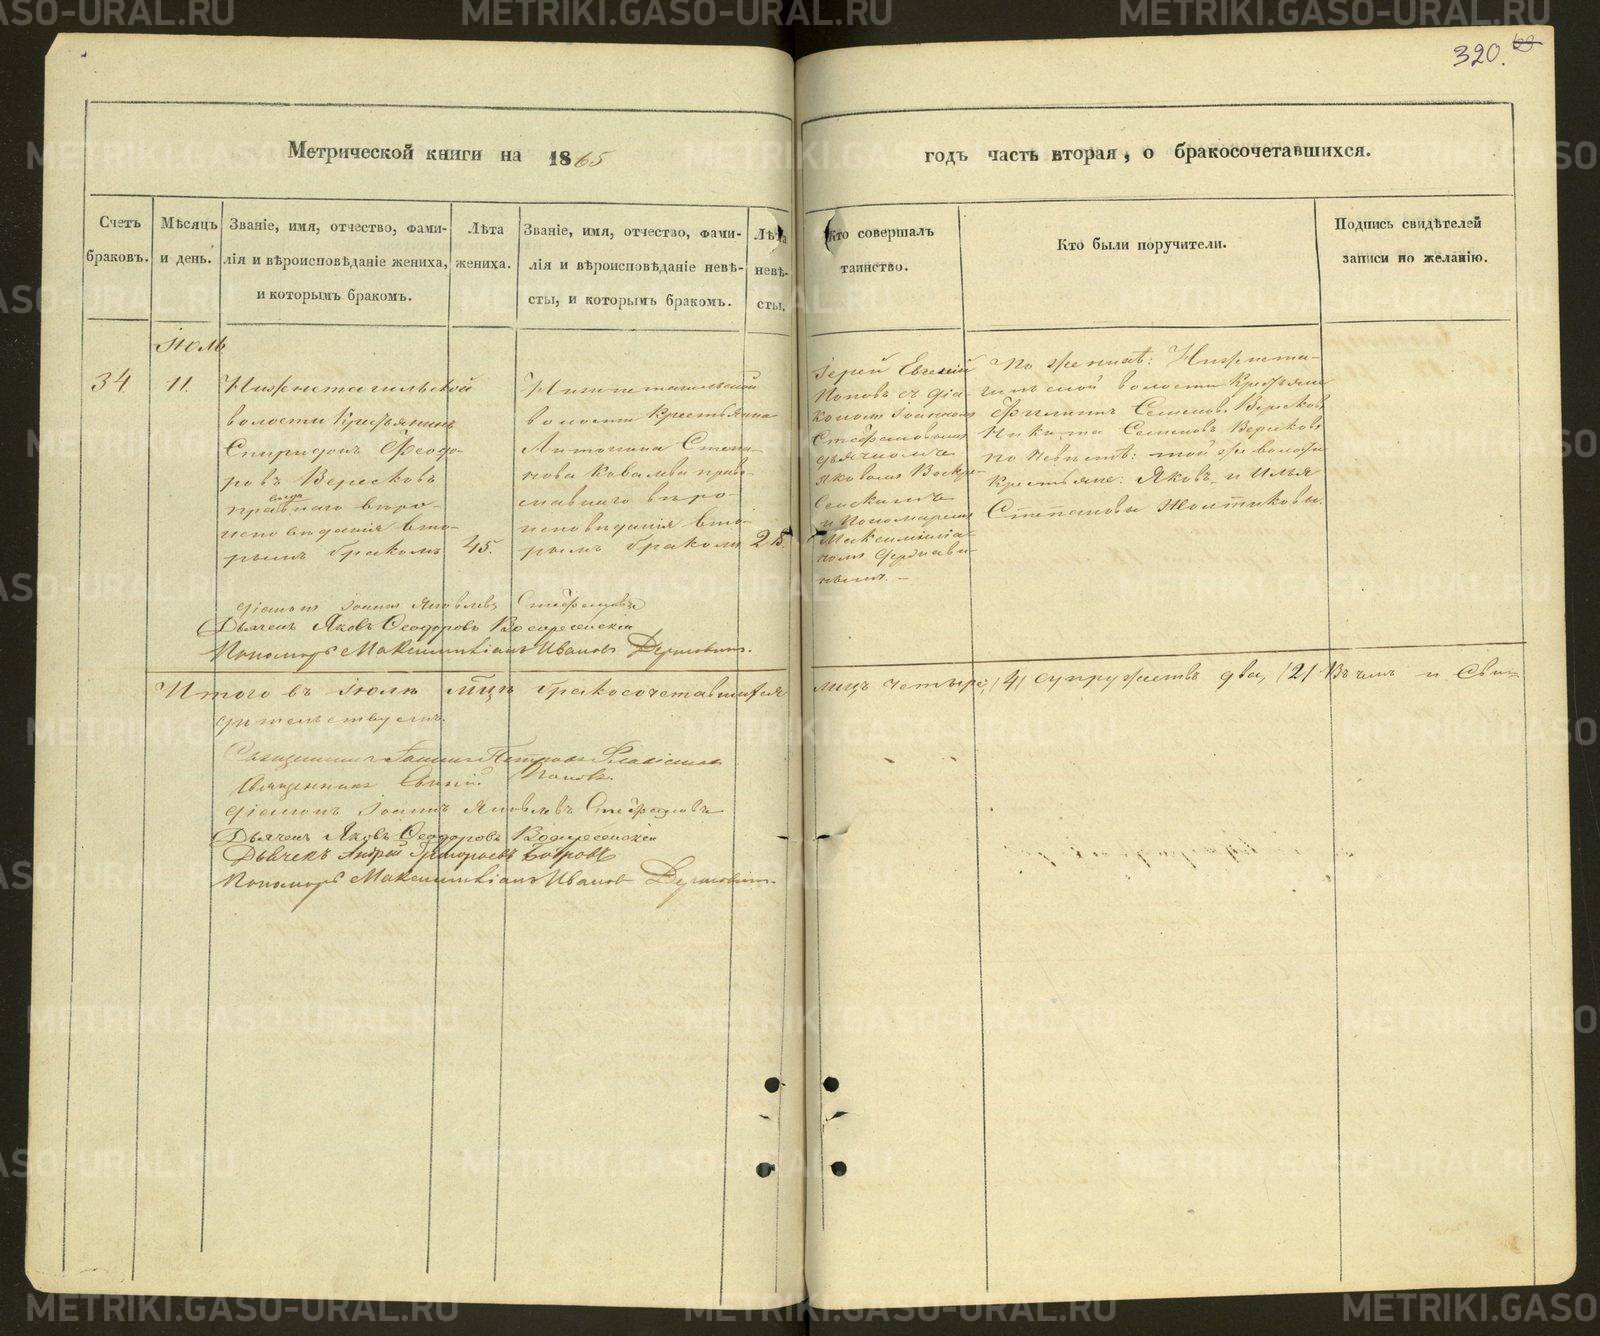 320.
Метрической книги на 1865
годъ часть вторая, о бракосочетавшихся.
Счетъ браковъ.
Мѣсяцъ и день.
Званіе, имя, отчество, фами-
лія и вѣроисповѣданіе жениха,
и которымъ бракомъ.
Лѣта жениха.
Званіе, имя, отчество, фами-
лія и вѣроисповѣданіе невѣ-
сты, и которымъ бракомъ.
Лѣта невѣ-
сты.
Кто совершалъ
таинство.
Кто были поручители.
Подпись свидѣтелей
записи по желанію.
Іюль
34
11.
Нижнетагильской
волости Крестьянинъ
Спиридонъ Ѳеодо-
ровъ Вересковъ
православнаго вѣро-
исповѣданія вто-
рымъ бракомъ
45.
Нижнетагильской
волости Крестьянка
Степа-
нова право-
славнаго вѣро-
исповѣданія вто-
рымъ бракомъ
25.
Іерей Евгеній
Поповъ съ діа-
кономъ Іоанномъ
Стефановымъ
дьячкомъ
Яковомъ Воскре-
сенскимъ
и Пономаремъ
Максимиліа-
номъ
По женихѣ: Нижнета-
гильской волости Крестьяне
Филиппъ Семеновъ Вересковъ
Никита Семеновъ Вересковъ
по невѣстѣ: той же волости
Крестьяне: Яковъ и Илья
Степановы Желтиковы.
діаконъ Іоаннъ Яковлевъ Стефановъ
Дьячекъ Яковъ Ѳеодоровъ Воскресенскій
Пономарь Максимиліанъ Ивановъ
Итого въ Іюлѣ мцѣ бракосочетавшихся
лицъ четыре, (4) супружествъ два, (2) Въ чемъ и сви-
дѣтельствуемъ.
Священникъ Іоаннъ Петровъ
Священникъ Евгеній Поповъ.
діаконъ Іоаннъ Яковлевъ Стефановъ
Дьячекъ Яковъ Ѳеодоровъ Воскресенскій
Дьячекъ Андрей Григорьевъ Бобровъ
Пономарь Максимиліанъ Ивановъ
METRIKI.GASO-URAL.RU